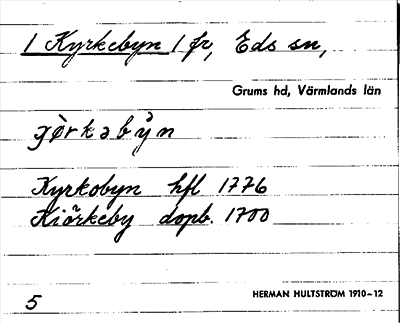 1 Kyrkebyn 1 fr, Eds sn,
Grums hd, Värmlands län
Kyrkobyn hfl 1776
Kiörkeby dopb. 1700
5
HERMAN HULTSTRÖM 1910–12